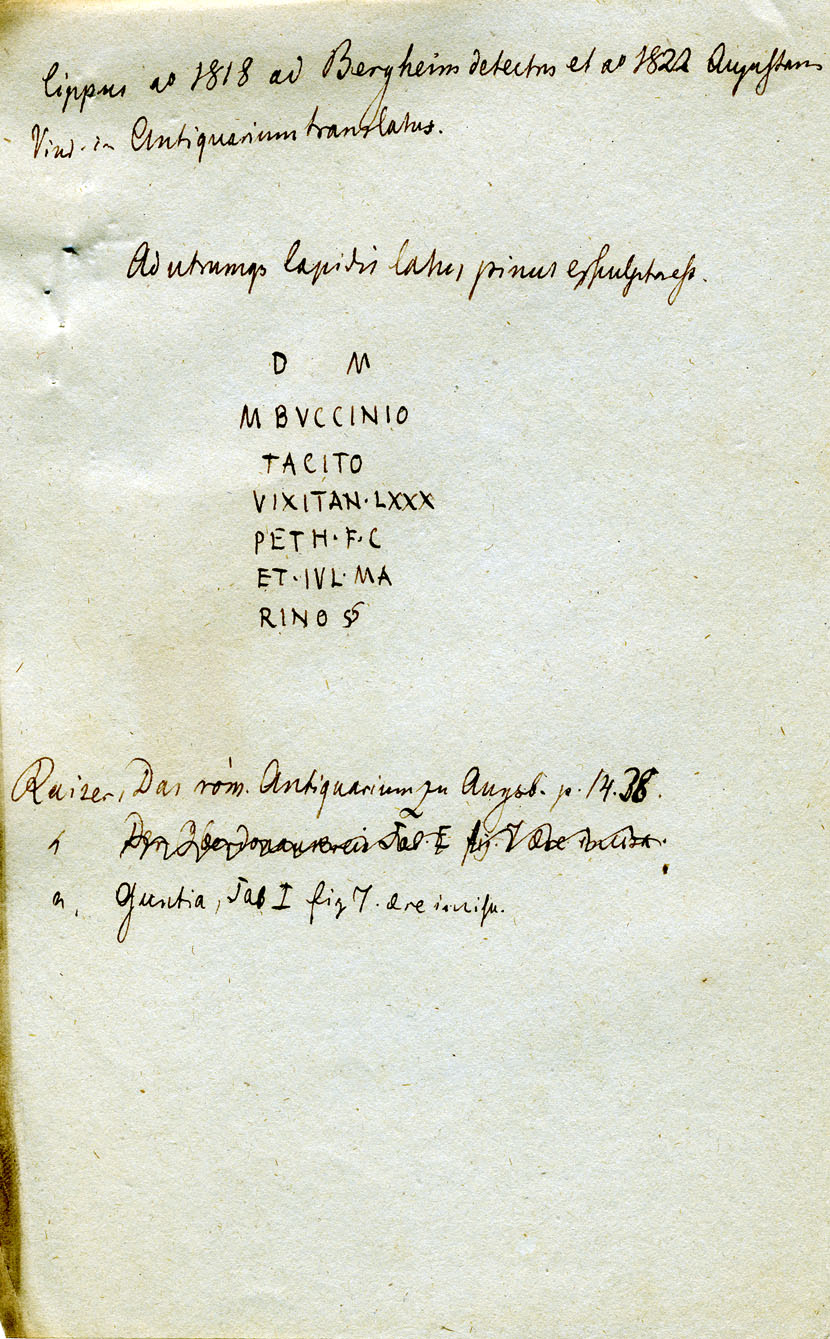 Cippus aº 1818 ad Bergheim detectus et aº 1822 Augustam
Vind. in Antiquarium translatus.
Ad utrumq lapidis latus pinus exsculpta est.
D M
M BVCCINIO
TACITO
VIXITAN·LXXX
PETH·F·C
ET·IVL·MA
RINO
Raiser, Das röm. Antiquarium zu Augsb. p. 14. 38.
" Der Oberdonaukreis Tab. I fig. 7 ære incisa.
" , Guntia, Tab I fig 7. ære incisu.